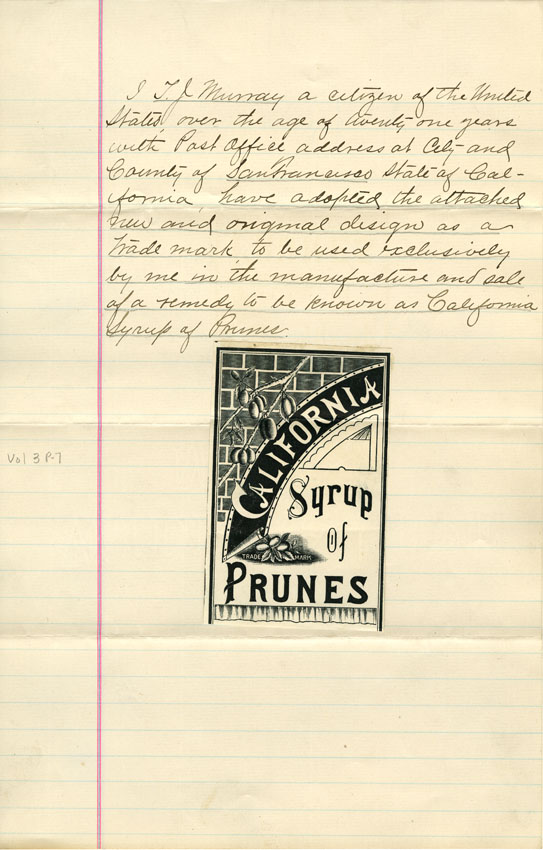 I T. J. Murray a citizen of the United
States, over the age of twenty one years
with Post Office address at City and
County of San Francisco State of Cal-
ifornia, have adopted the attached
new and original design as a
trade mark, to be used exclusively
by me in the manufacture and sale
of a remedy to be known as California
Syrup of Prunes.
Vol 3 P-7
CALIFORNIA
Syrup
of
TRADE MARK
PRUNES